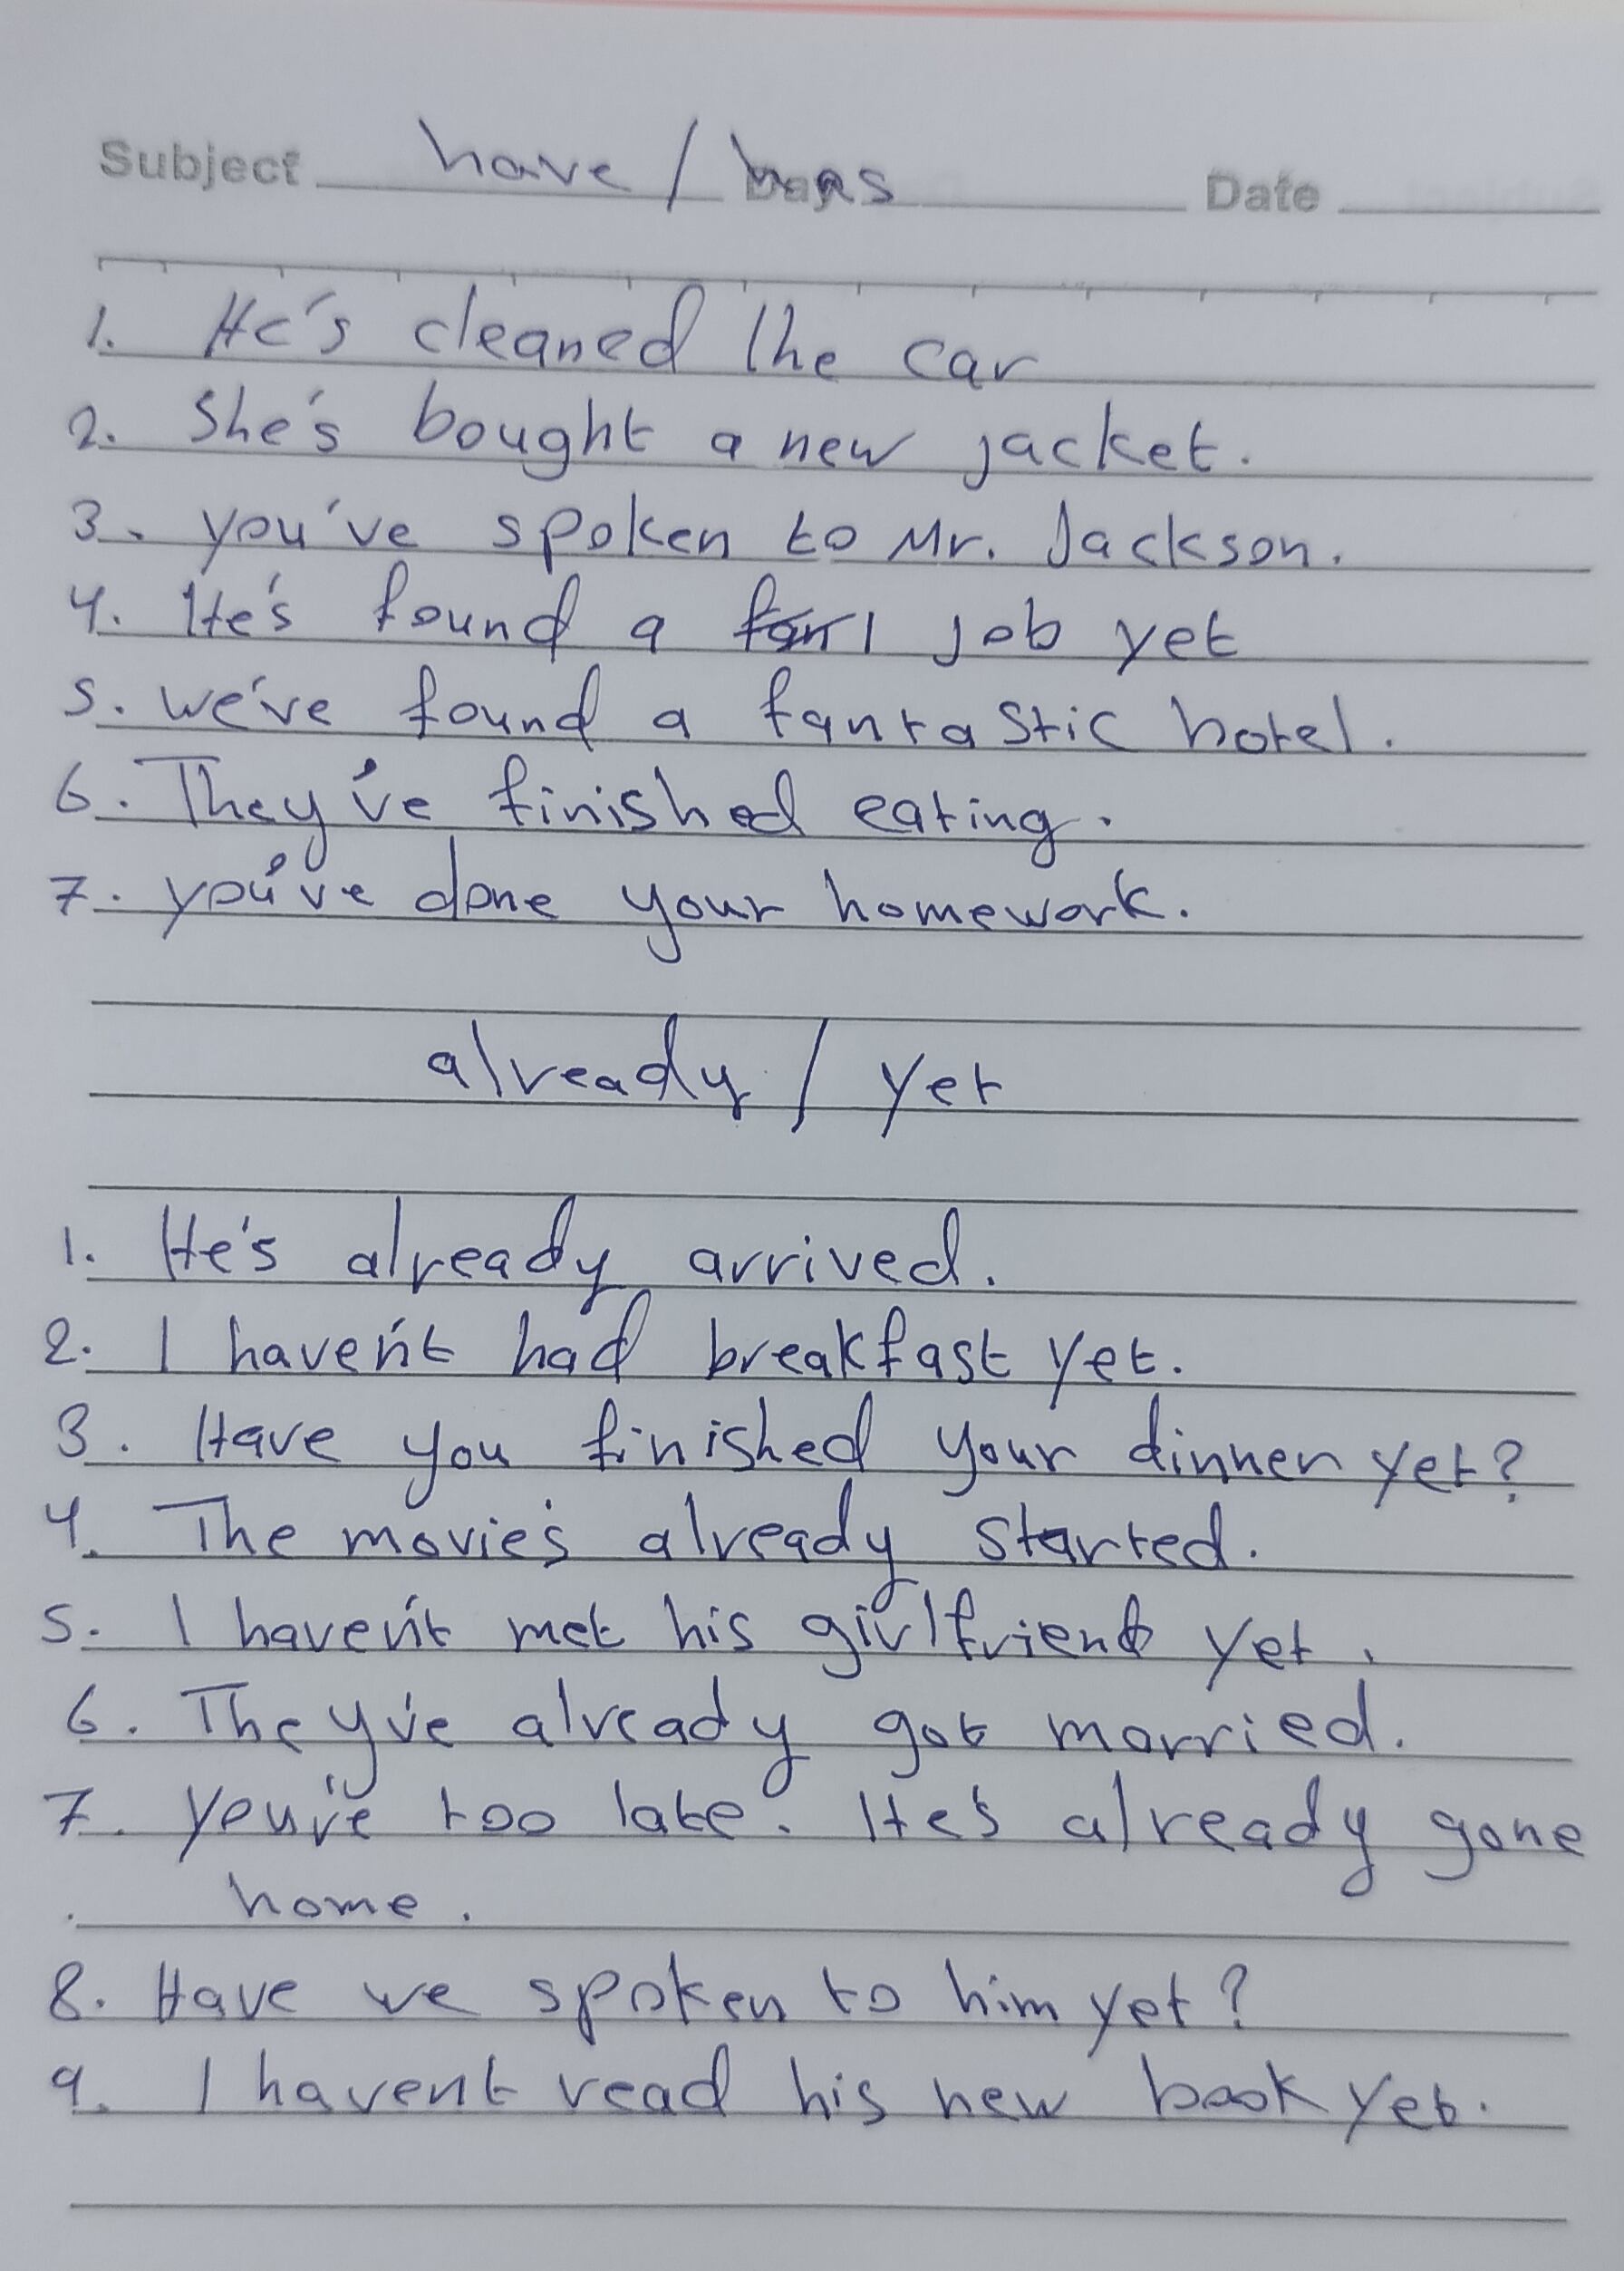 Subject have / has Date
1. He's cleaned the car
2. She's bought a new jacket.
3. you've spoken to Mr. Jackson.
4. He's found a job yet
5. we've found a fantastic hotel.
6. They've finished eating.
7. you've done your homework.
already / yet
1. He's already arrived.
2. I haven't had breakfast yet.
3. Have you finished your dinner yet?
4. The movie's already started.
5. I haven't met his girlfriend yet.
6. They've already got married.
7. you're too late. He's already gone
home.
8. Have we spoken to him yet?
9. I havent read his new book yet.